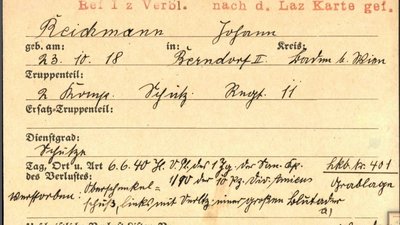 Bei I z Verbl. nach d. Laz Karte gef.
Reichmann Johann
geb. am: in: Kreis:
23.10.18 Berndorf II. Baden b. Wien
Truppenteil:
2 Komp. Schütz. Regt. 11
Ersatz-Truppenteil:
Dienstgrad:
Schütze
Tag, Ort u. Art 6.6.40 H.V.Pl. des 1 Zg. der San. Kp. hkb Nr. 401
des Verlustes: 1/90 der 10 Pz. Div. Amiens Grablage
Verstorben: Oberschenkel=
schuß, links mit Verltz. einer großen Blutader